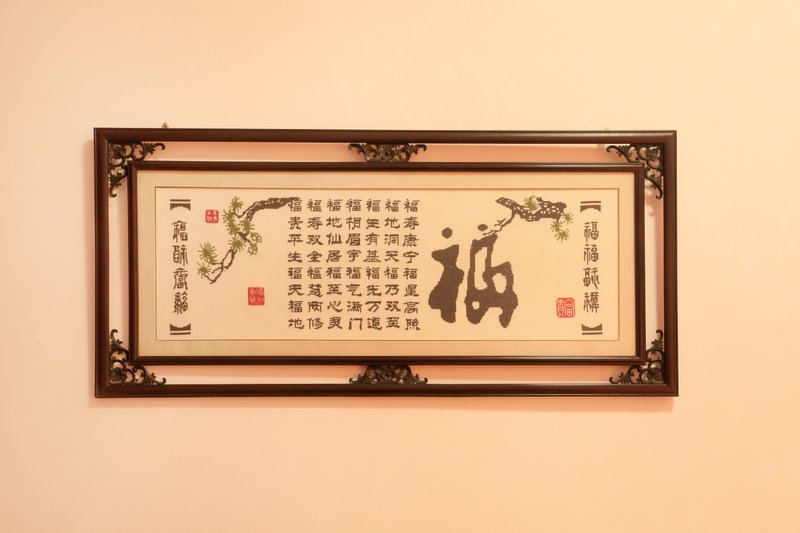 福
福寿康宁福星高照
福地洞天福乃双至
福生有基福先万道
福梢眉宇福气满门
福地仙居福至心灵
福寿双全福慧两修
福贵平生福天福地